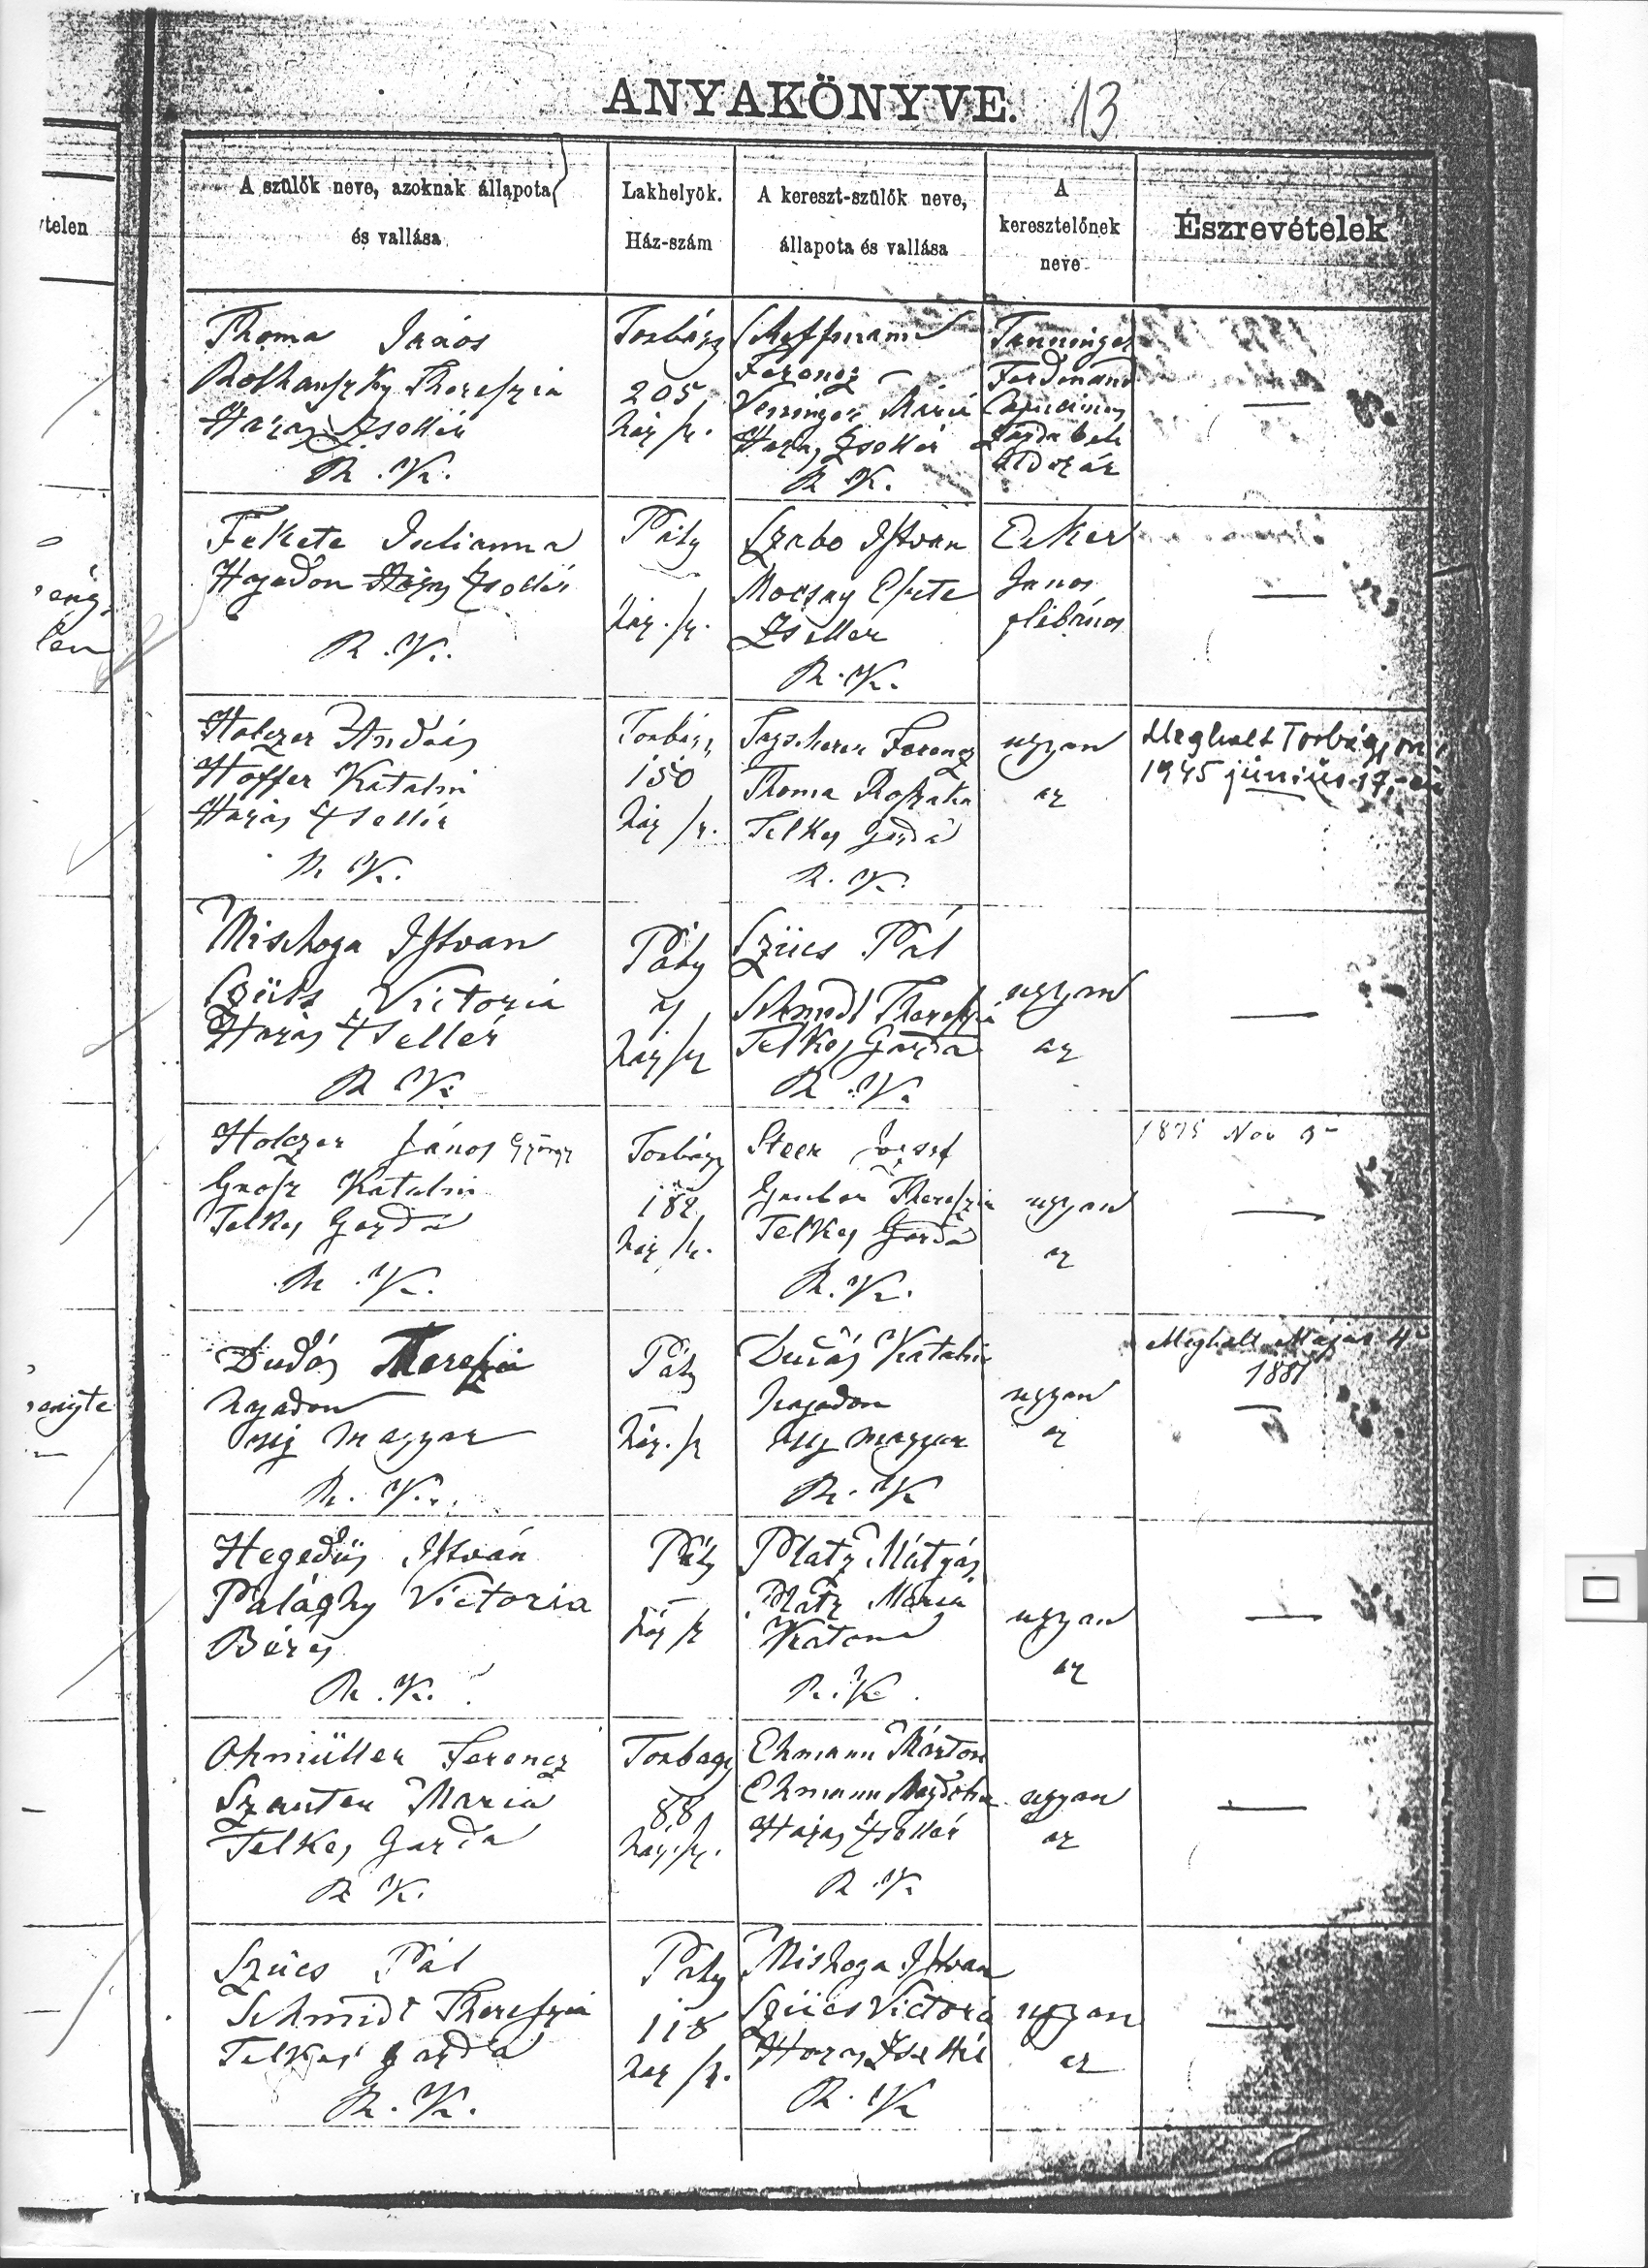 ANYAKÖNYVE. 13
A szülők neve, azoknak állapota
és vallása
Lakhelyök.
Ház-szám
A kereszt-szülők neve,
állapota és vallása
A
keresztelőnek
neve
Észrevételek
ytelen
Thoma János
Thereszia
Házas Zsellér
R. K.
Torbágy
205
ház sz.
Ferencz
Mária
Házas Zsellér
R. K.
Ferdinand
Fekete Julianna
Hajadon Zsellér
R. K.
Páty
ház. sz.
Szabo Istvan
Mocsay
Zseller
R. K.
Ecker
Janos
plébános
Holczer András
Hoffer Katalin
Házas Zsellér
R. K.
Torbágy
150
ház sz.
Ferencz
Thoma Rozalia
Telkes Gazda
R. K.
ugyan
az
Meghalt Torbágyon
1945 június 17.-én
Mischoga Istvan
Szücs Victoria
Házas Zsellér
R. K.
Páty
ház sz
Szücs Pál
Schmidt Theresia
Telkes Gazda
R. K.
ugyan
az
Holczer János György
Grosz Katalin
Telkes Gazda
R. K.
Torbágy
182
ház sz.
Steer József
Theresia
Telkes Gazda
R. K.
ugyan
az
1875 Nov
Dudás Theresia
hajadon
magyar
R. K.
Páty
ház. sz
Dudás Katalin
hajadon
magyar
R. K
ugyan
az
Meghalt Május 4
1881
Hegedüs István
Palághy Victoria
Béres
R. K.
Páty
ház sz
Platz Mátyás
Platz Mária
Katona
R. K.
ugyan
az
Ohmüller Ferencz
Szauter Maria
Telkes Gazda
R K.
Torbagy
88
ház. sz.
Ehmann Márton
Ehmann Magdolna
Házas Zsellér
R. K.
ugyan
az
Szücs Pál
Schmidt Theresia
Telkes gazda
R. K.
Páty
118
ház sz.
Mishoga Istvan
Szücs Victoria
Házas Zsellér
R. K
ugyan
az